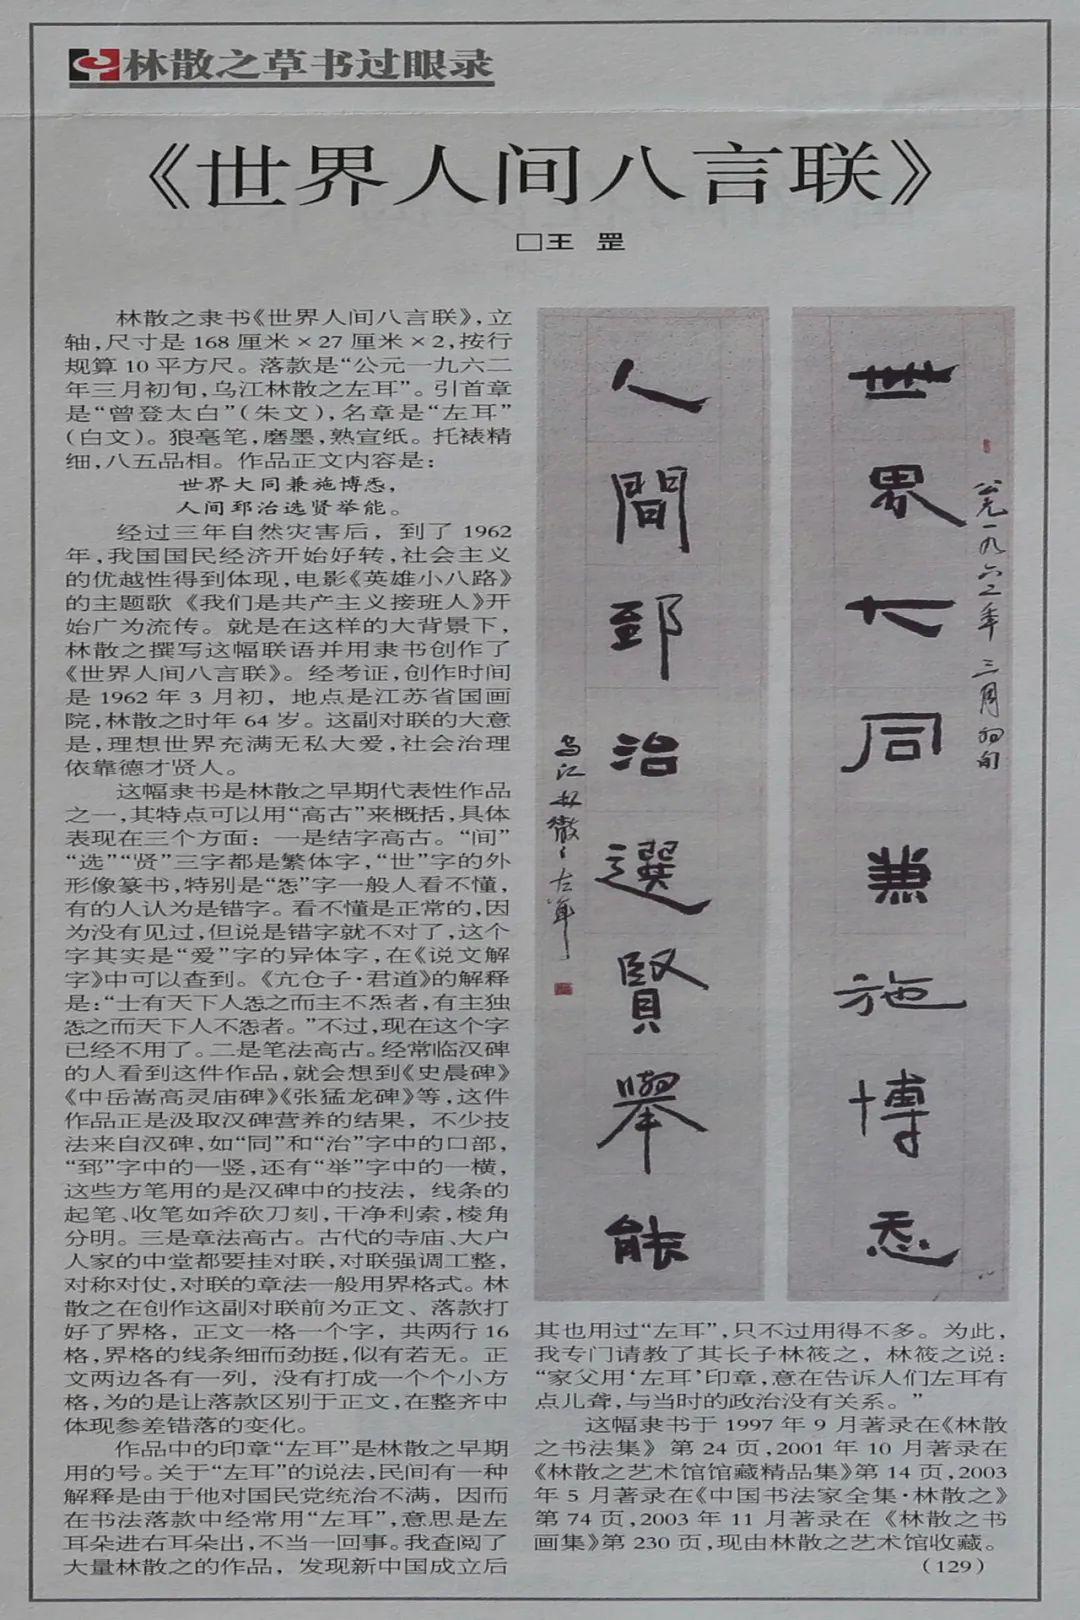 林散之草书过眼录
《世界人间八言联》
□王 罡
林散之隶书《世界人间八言联》，立
轴，尺寸是 168 厘米×27 厘米×2，按行
规算 10 平方尺。落款是“公元一九六二
年三月初旬，乌江林散之左耳”。引首章
是“曾登太白”（朱文），名章是“左耳”
（白文）。狼毫笔，磨墨，熟宣纸。托裱精
细，八五品相。作品正文内容是：
世界大同兼施博㤅，
人间郅治选贤举能。
经过三年自然灾害后，到了 1962
年，我国国民经济开始好转，社会主义
的优越性得到体现，电影《英雄小八路》
的主题歌《我们是共产主义接班人》开
始广为流传。就是在这样的大背景下，
林散之撰写这幅联语并用隶书创作了
《世界人间八言联》。经考证，创作时间
是 1962 年 3 月初，地点是江苏省国画
院，林散之时年 64 岁。这副对联的大意
是，理想世界充满无私大爱，社会治理
依靠德才贤人。
这幅隶书是林散之早期代表性作品
之一，其特点可以用“高古”来概括，具体
表现在三个方面：一是结字高古。“间”
“选”“贤”三字都是繁体字，“世”字的外
形像篆书，特别是“㤅”字一般人看不懂，
有的人认为是错字。看不懂是正常的，因
为没有见过，但说是错字就不对了，这个
字其实是“爱”字的异体字，在《说文解
字》中可以查到。《亢仓子·君道》的解释
是：“士有天下人㤅之而主不㤅者，有主独
㤅之而天下人不㤅者。”不过，现在这个字
已经不用了。二是笔法高古。经常临汉碑
的人看到这件作品，就会想到《史晨碑》
《中岳嵩高灵庙碑》《张猛龙碑》等，这件
作品正是汲取汉碑营养的结果，不少技
法来自汉碑，如“同”和“治”字中的口部，
“郅”字中的一竖，还有“举”字中的一横，
这些方笔用的是汉碑中的技法，线条的
起笔、收笔如斧砍刀刻，干净利索，棱角
分明。三是章法高古。古代的寺庙、大户
人家的中堂都要挂对联，对联强调工整，
对称对仗，对联的章法一般用界格式。林
散之在创作这副对联前为正文、落款打
好了界格，正文一格一个字，共两行 16
格，界格的线条细而劲挺，似有若无。正
文两边各有一列，没有打成一个个小方
格，为的是让落款区别于正文，在整齐中
体现参差错落的变化。
作品中的印章“左耳”是林散之早期
用的号。关于“左耳”的说法，民间有一种
解释是由于他对国民党统治不满，因而
在书法落款中经常用“左耳”，意思是左
耳朵进右耳朵出，不当一回事。我查阅了
大量林散之的作品，发现新中国成立后
世界大同兼施博㤅
公元一九六二年三月初旬
人間郅治選賢舉能
乌江林散之左耳
其也用过“左耳”，只不过用得不多。为此，
我专门请教了其长子林筱之，林筱之说：
“家父用‘左耳’印章，意在告诉人们左耳有
点儿聋，与当时的政治没有关系。”
这幅隶书于 1997 年 9 月著录在《林散
之书法集》第 24 页，2001 年 10 月著录在
《林散之艺术馆馆藏精品集》第 14 页，2003
年 5 月著录在《中国书法家全集·林散之》
第 74 页，2003 年 11 月著录在《林散之书
画集》第 230 页，现由林散之艺术馆收藏。
（129）